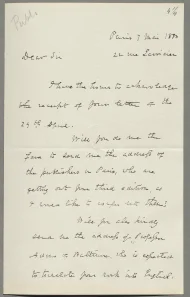 Publ.
4/4
Paris 7 Mai 1880
Dear Sir
I have the honor to acknowledge
the receipt of your letter of the
29th April.
Will you do me the
favor to send me the address of
the publishers in Paris, who are
getting out your third edition as
I would like to confer with them?
Will you also kindly
send me the address of Professor
who is expected
to translate your work into English.